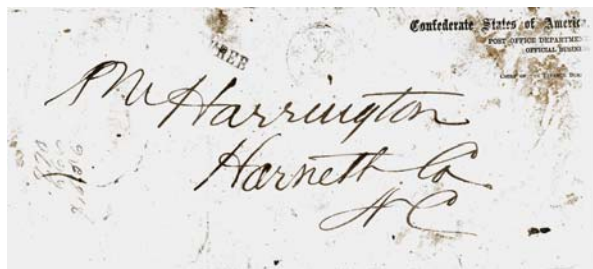 Confederate States of Americ
POST OFFICE DEPARTME
OFFICIAL BUSIN
FREE
PM Harrington
Harnett Co
N C